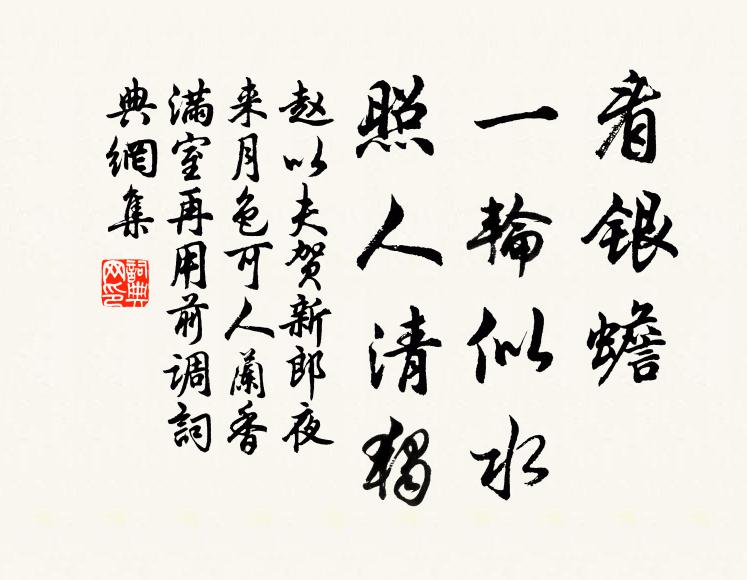 看銀蟾
一輪似水
照人清獨
赵以夫贺新郎夜
来月色可人蘭香
滿室再用前调詞
典網集
詞典网印